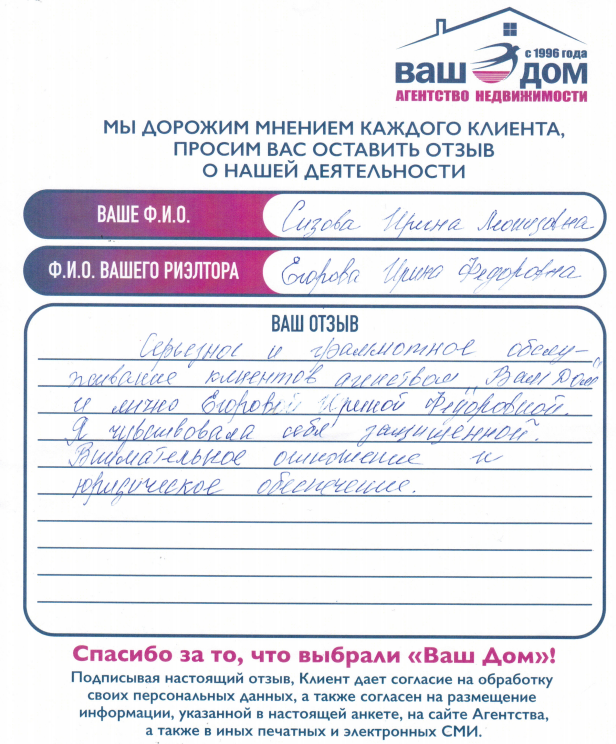 с 1996 года
ВАШ ДОМ
АГЕНТСТВО НЕДВИЖИМОСТИ
МЫ ДОРОЖИМ МНЕНИЕМ КАЖДОГО КЛИЕНТА,
ПРОСИМ ВАС ОСТАВИТЬ ОТЗЫВ
О НАШЕЙ ДЕЯТЕЛЬНОСТИ
ВАШЕ Ф.И.О. Сизова Ирина Леонидовна
Ф.И.О. ВАШЕГО РИЭЛТОРА Егорова Ирина Федоровна
ВАШ ОТЗЫВ
Серьезное и граммотное обслу-
живание клиентов агенством "Ваш Дом"
и лично Егоровой Ириной Фёдоровной.
Я чувствовала себя защищенной.
Внимательное отношение и
юридическое обеспечение.
Спасибо за то, что выбрали «Ваш Дом»!
Подписывая настоящий отзыв, Клиент дает согласие на обработку
своих персональных данных, а также согласен на размещение
информации, указанной в настоящей анкете, на сайте Агентства,
а также в иных печатных и электронных СМИ.